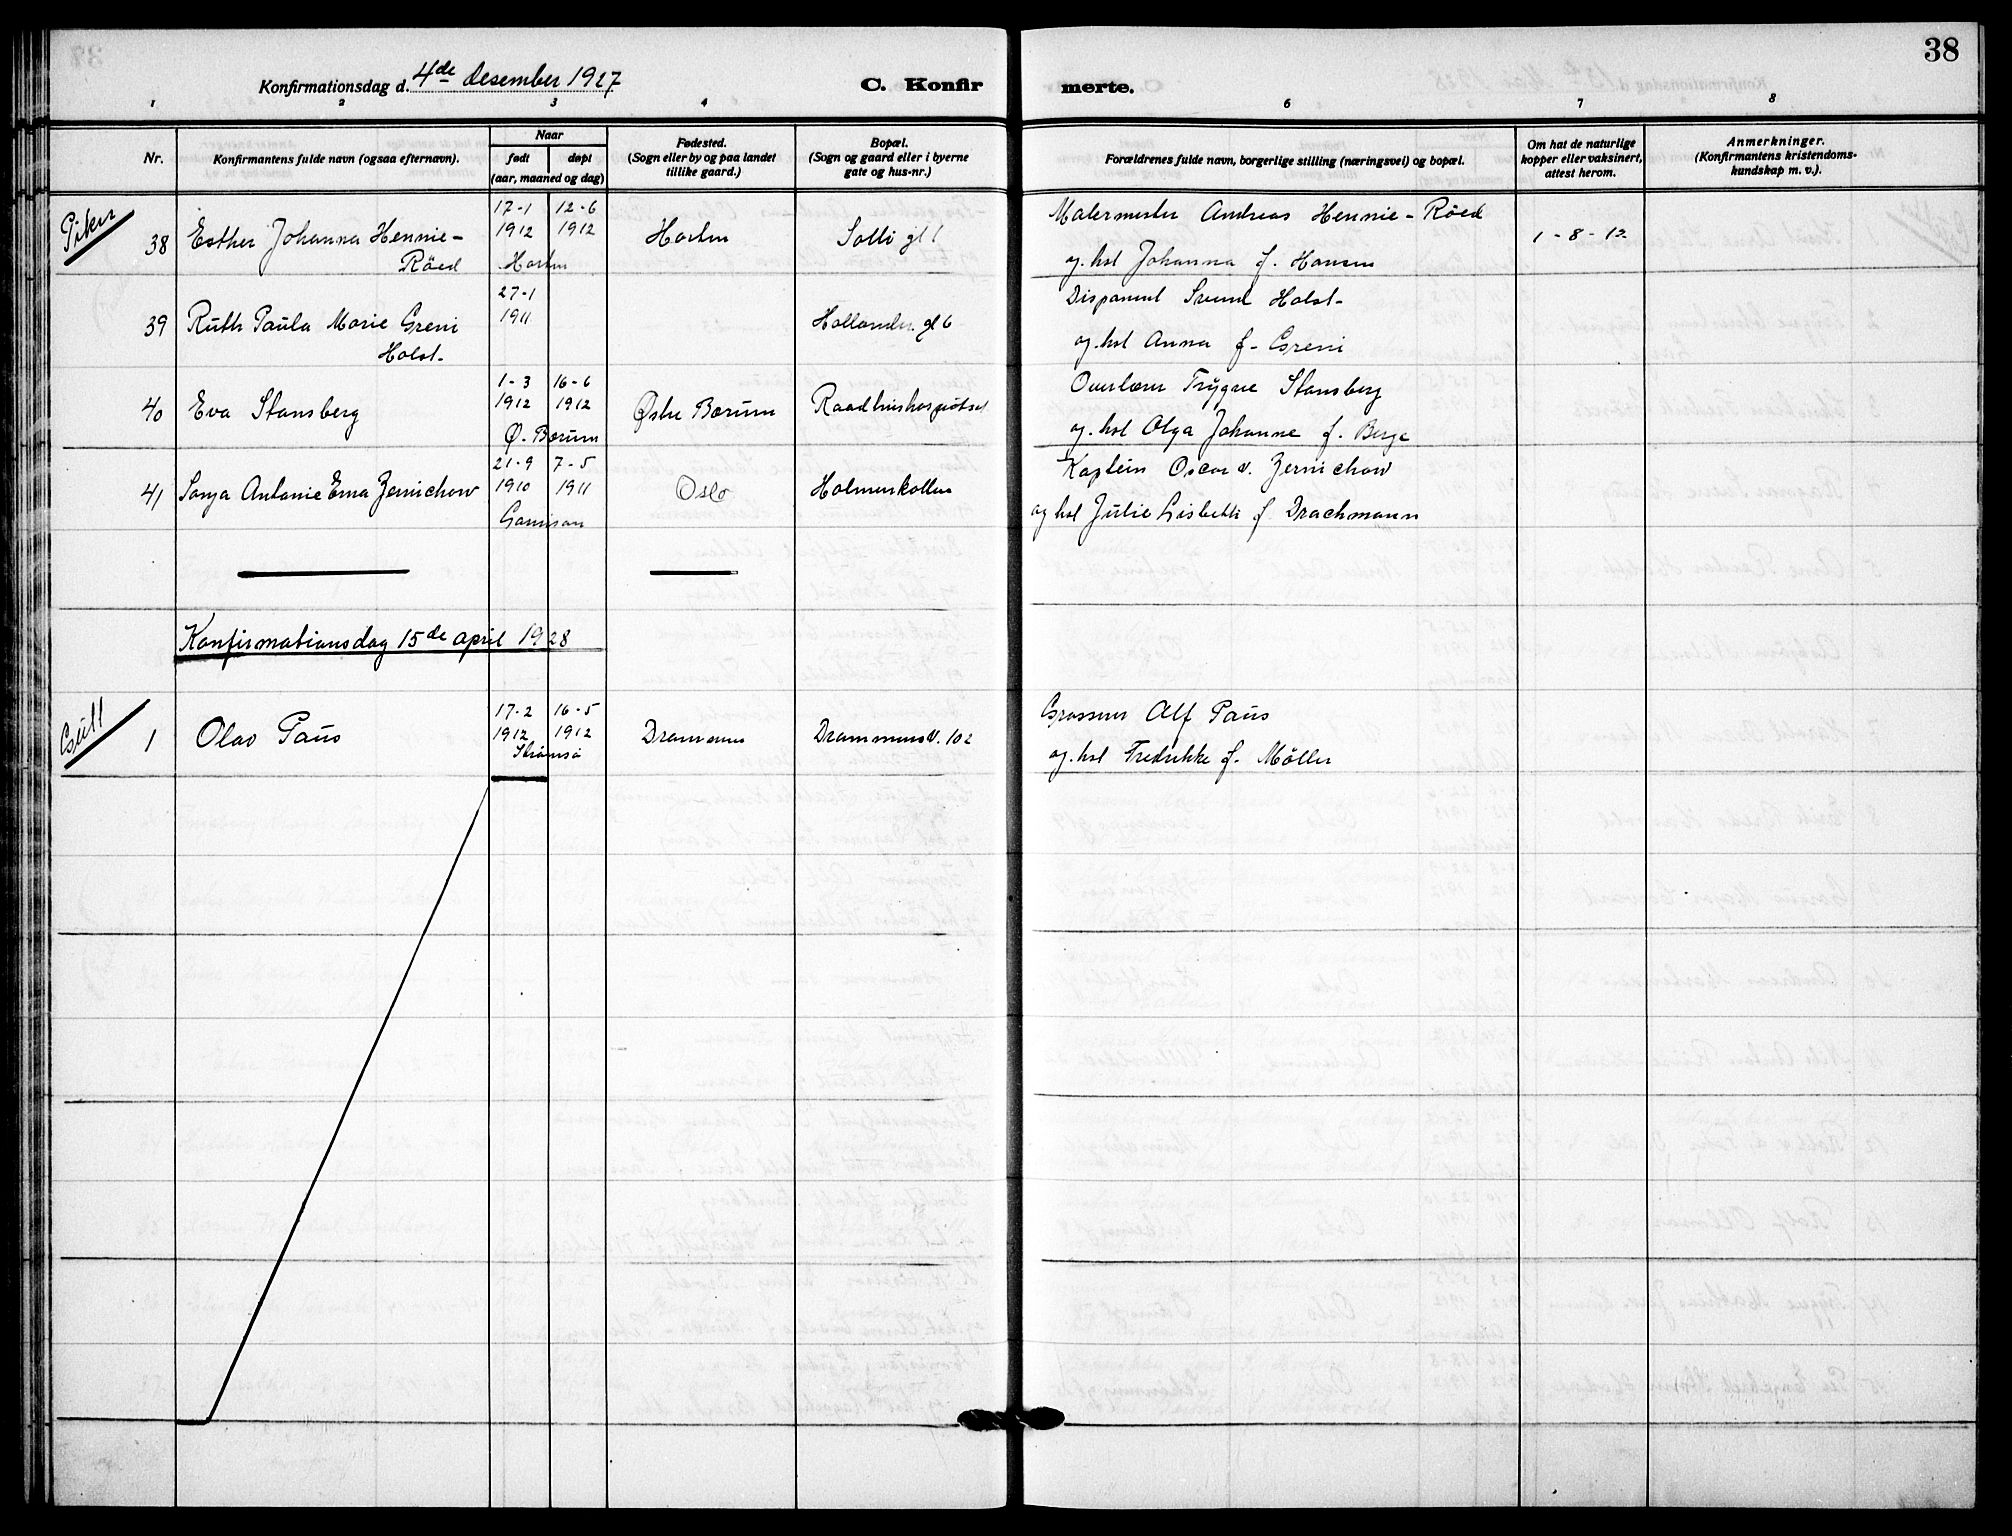 38
Konfirmationsdag d. 4de desember 1927
C. Konfir merte.
1 2 3 4 5 6 7 8
Nr.
Konfirmantens fulde navn (ogsaa efternavn).
Naar
født døpt
(aar, maaned og dag)
Fødested.
(Sogn eller by og paa landet
tillike gaard.)
Bopæl.
(Sogn og gaard eller i byerne
gate og hus-nr.)
Forældrenes fulde navn, borgerlige stilling (næringsvei) og bopæl.
Om hat de naturlige
kopper eller vaksinert,
attest herom.
Anmerkninger.
(Konfirmantens kristendoms-
kundskap m. v.).
Piker
17-1 12-6 Malermester Andreas Hennie-Röed
38 Esther Johanna Hennie- 1912 1912 Horten Solli gt 1 1-8-12
Röed Horten og hst Johanna f. Hansen
27-1 Disponent Svend Holst-
39 Ruth Paula Marie Greni 1911 Hollender gt 6
Holst- og hst Anna f- Greni
1-3 16-6 Overlærer Trygve Stansberg
40 Eva Stansberg 1912 1912 Østre Bærum
Ø. Bærum og hst Olga Johanne f. Berge
21-9 7-5 Kaptein Oscar v. Zernichow
41 Sonja Antonie Ema Zernichow 1910 1911 Oslo Holmenkollen
Garnison og hst Julie Lisbeth f Drachmann
Konfirmationsdag 15de april 1928
Gutt
17-2 16-5 Grosserer Alf Paus
1 Olav Paus 1912 1912 Drammen Drammensv. 102
Strømsø og hst Fredrikke f. Möller